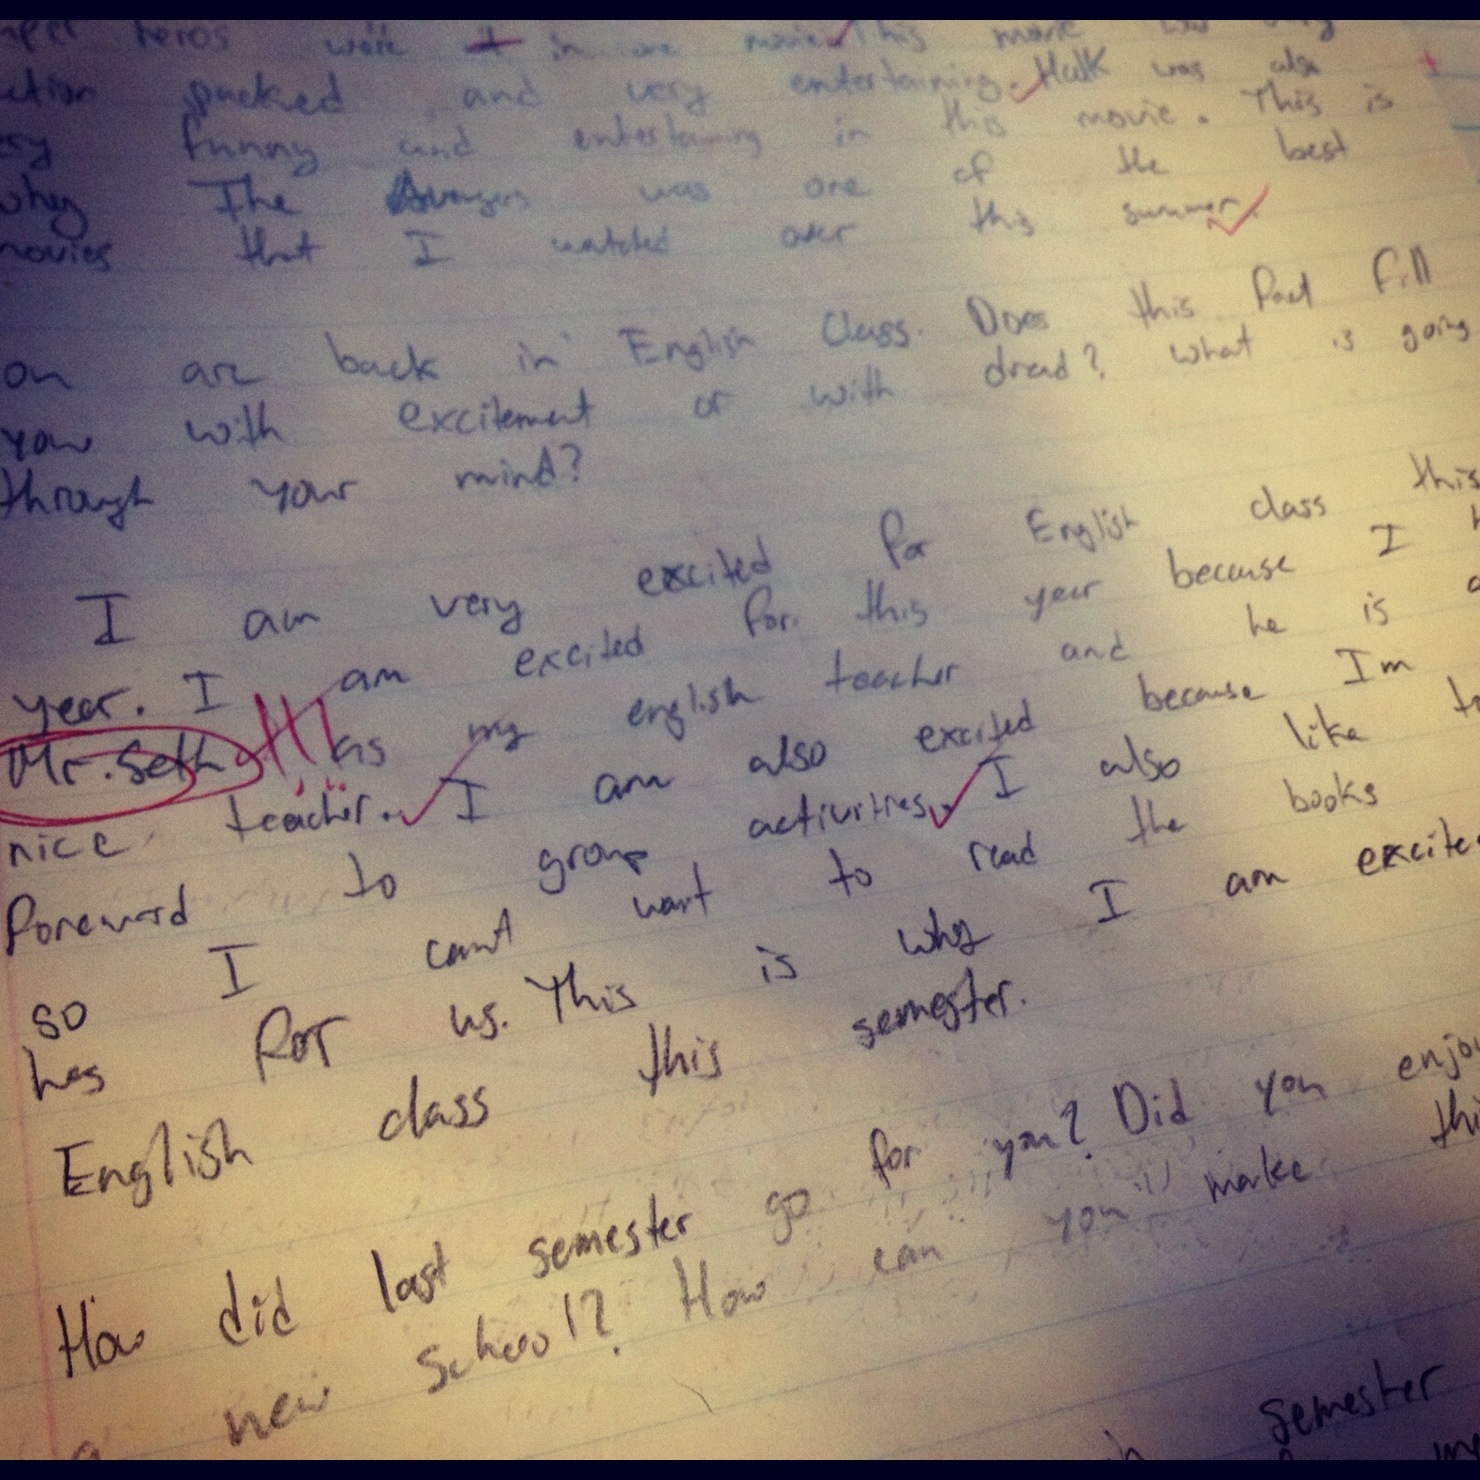 heros were in one movie. This movie was very
ction packed and very entertaining. Hulk was also
ery funny and entertaining in this movie. This is
why The Avengers was one of the best
movies that I watched over this summer.
ou are back in English Class. Does this fact fill
you with excitement or with dread? what is going
through your mind?
I am very excited for English class this
year. I am excited for this year because I h
Mr. Seth !!! as my english teacher and he is a
nice teacher. I am also excited because Im
Foreward to group activities. I also like to
so I cant wait to read the books
has for us. This is why I am excite
English class this semester.
How did last semester go for you? Did you enjoy
a new school? How can you make thi
semester